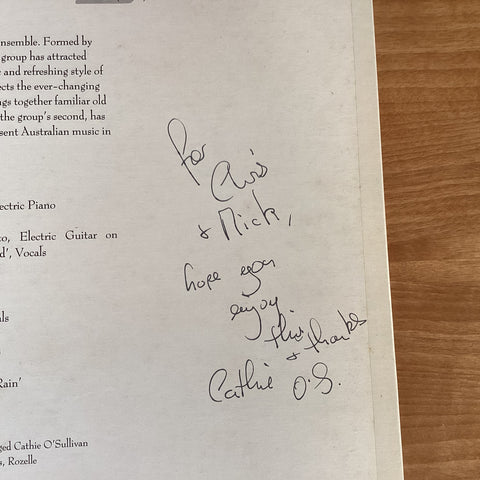 nsemble. Formed by
group has attracted
and refreshing style of
ects the ever-changing
ngs together familiar old
the group's second, has
sent Australian music in
ectric Piano
to, Electric Guitar on
d', Vocals
als
Rain'
ged Cathie O'Sullivan
s, Rozelle
for
Chris
& Mick,
hope you
enjoy
this
& thanks
Cathie O'S.